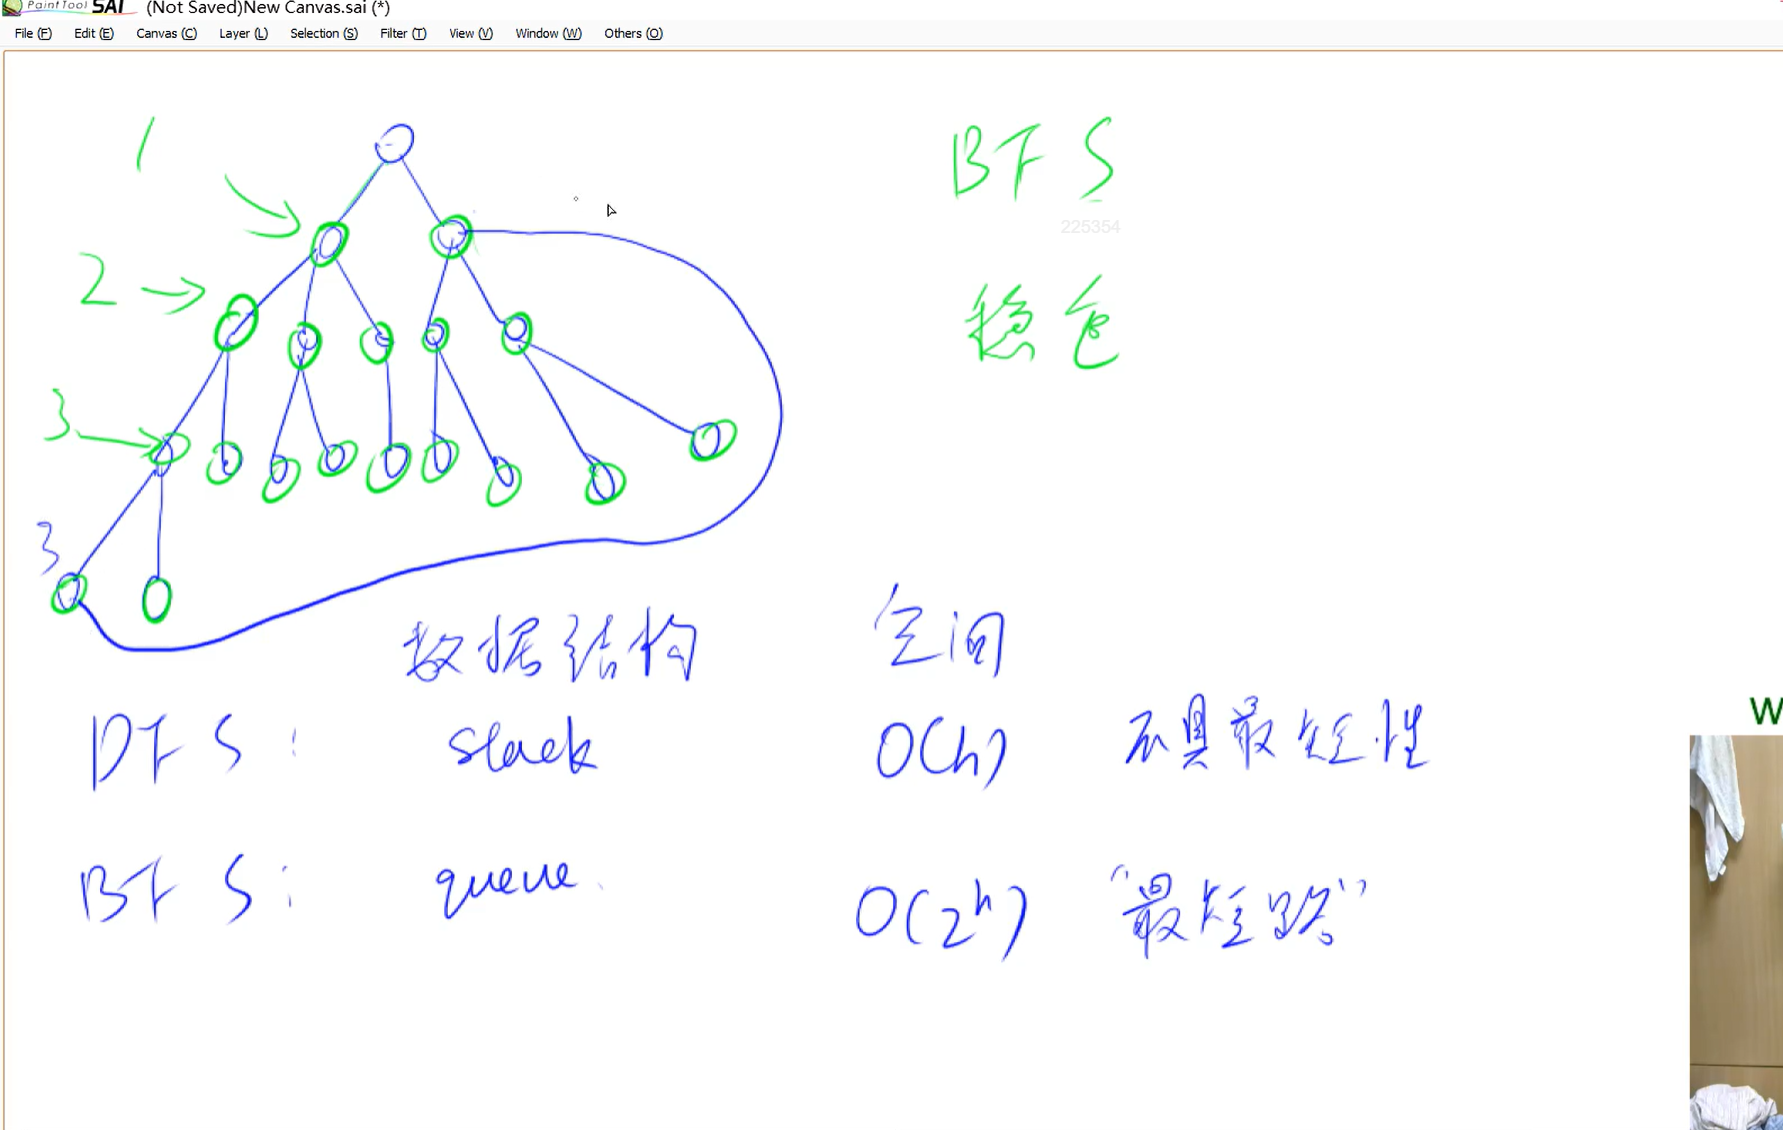 PaintTool SAI (Not Saved)New Canvas.sai (*)
File (F) Edit (E) Canvas (C) Layer (L) Selection (S) Filter (T) View (V) Window (W) Others (O)
1
BFS
225354
2
稳
3
3
数据结构 空间
DFS: stack O(h) 不具最短性
W
BFS: queue. O(2^h) “最短路”